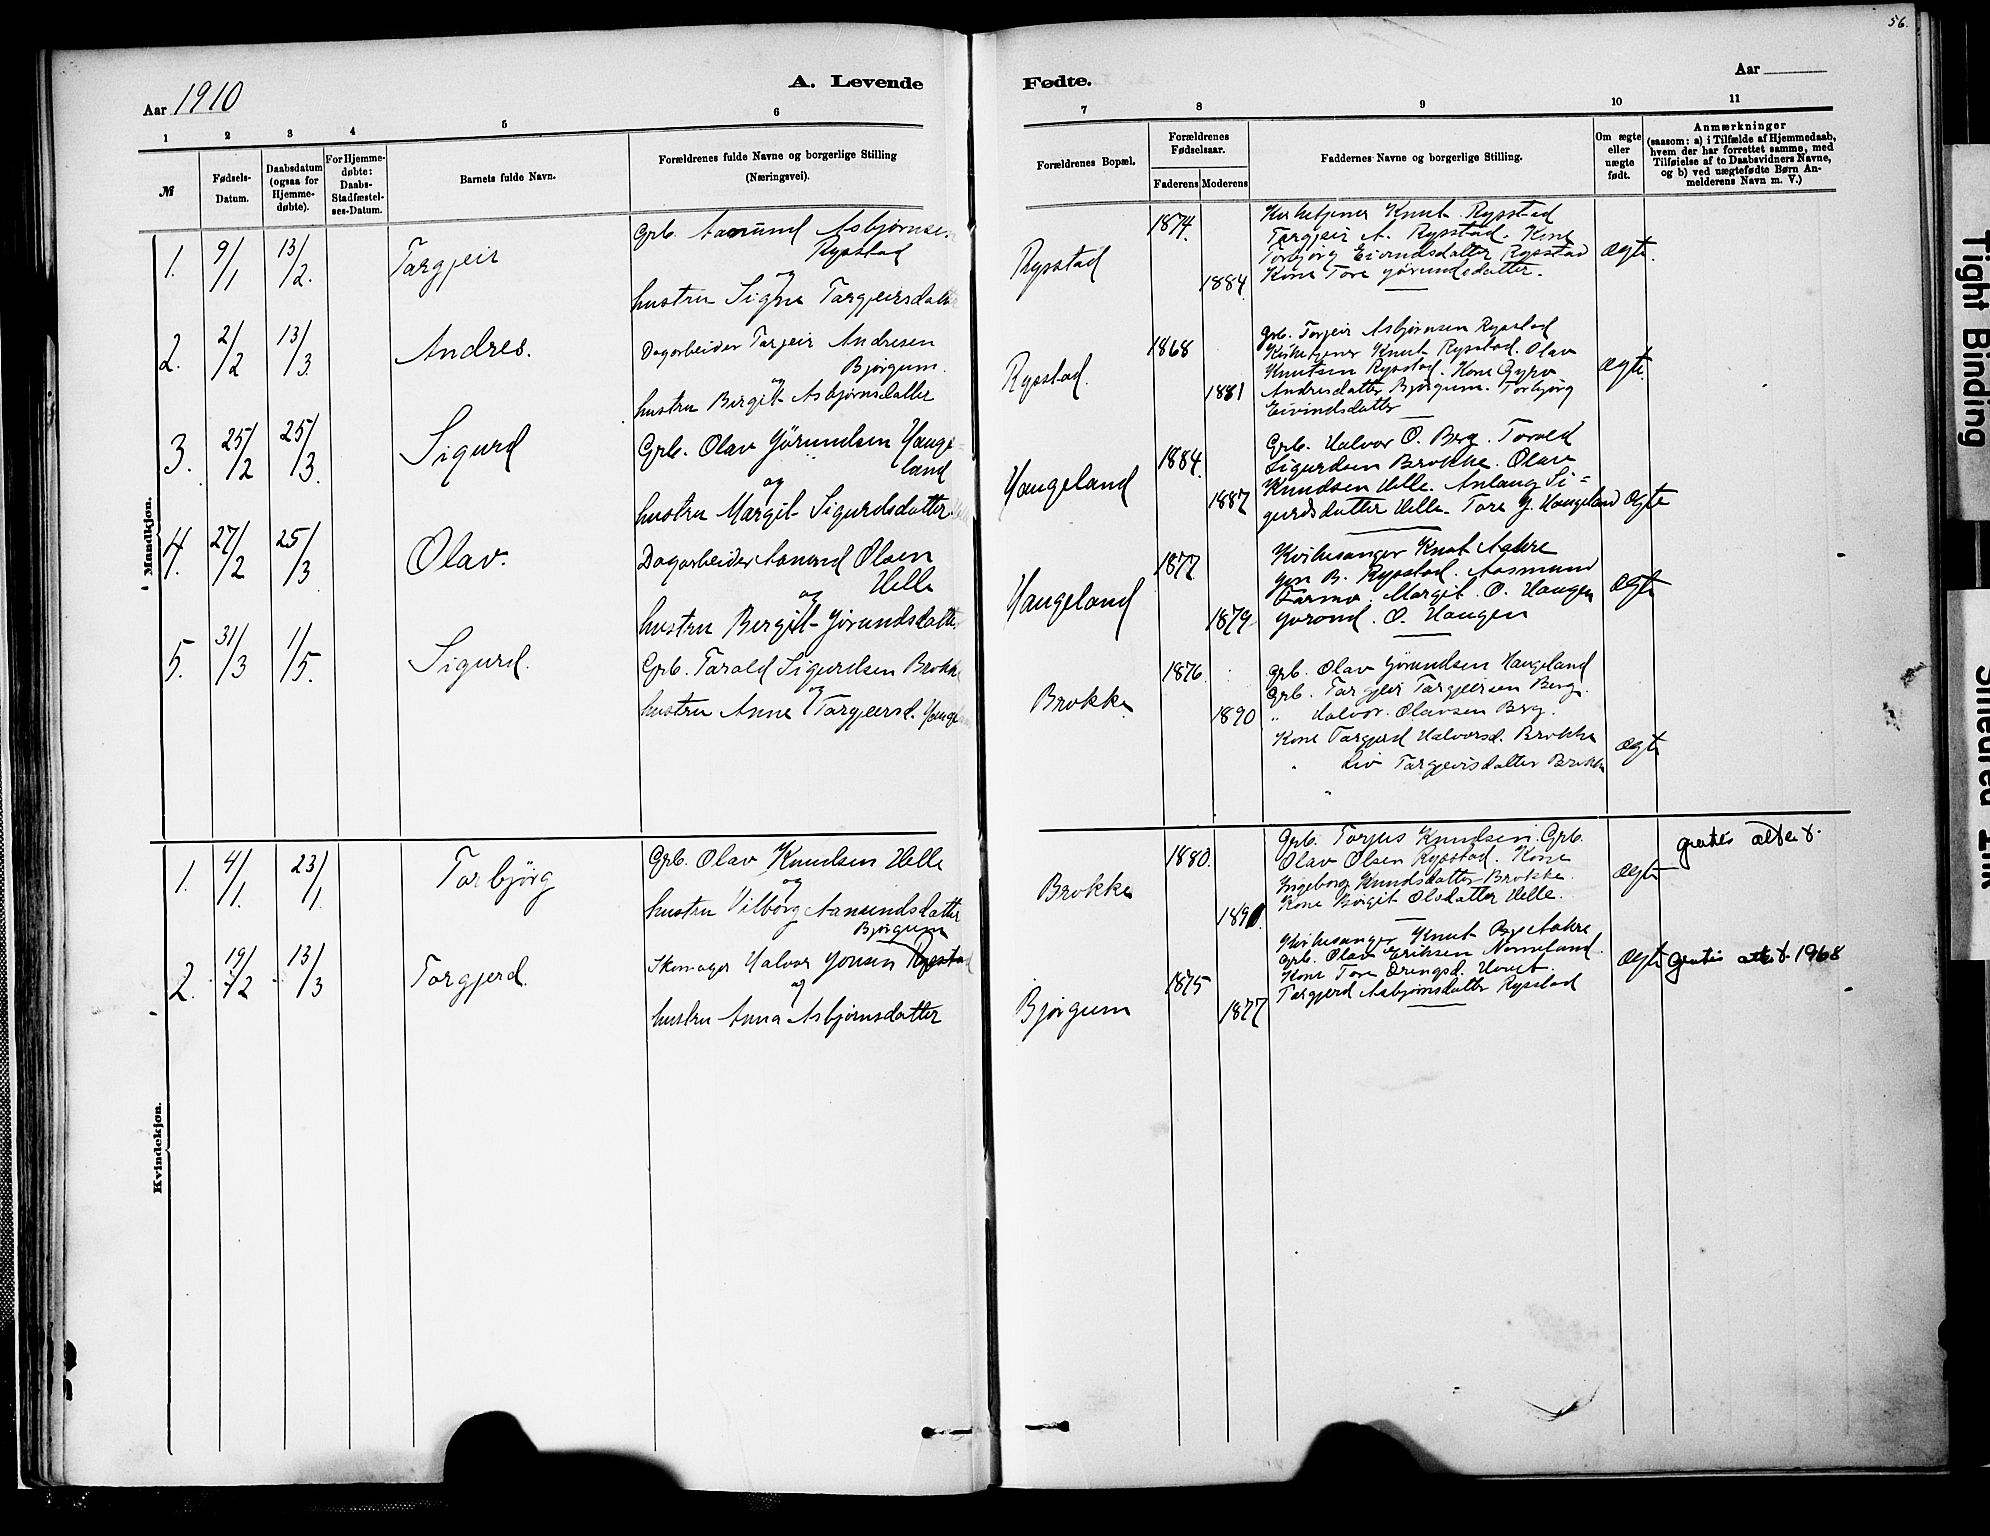 56.
Aar 1910
A. Levende
Fødte.
Aar
1 2 3 4 5 6 7 8 9 10 11
№
Fødsels-
Datum.
Daabsdatum
(ogsaa for
Hjemme-
døbte).
For Hjemme-
døbte:
Daabs-
Stadfæstel-
ses-Datum.
Barnets fulde Navn.
Forældrenes fulde Navne og borgerlige Stilling
(Næringsvei).
Forældrenes Bopæl.
Forældrenes
Fødselsaar.
Faderens Moderens
Faddernes Navne og borgerlige Stilling.
Om ægte
eller
uægte
født.
Anmærkninger
(saasom: a) i Tilfælde af Hjemmedaab,
hvem der har forrettet samme, med
Tilføielse af to Daabsvidners Navne,
og b) ved uægtefødte Børn An-
melderens Navn m. V.)
Mandkjøn.
1. 9/1 13/2. Targjeir
Grb. Aamund Asbjørnsen
Rysstad
og
hustru Signe Targjeirsdatter
Rysstad
1874.
1884.
Kirketjener Knut Rysstad
Targjeir A. Rysstad. Kone
Torbjørg Eivindsdatter Rysstad
Kone Tore Jørundsdatter.
ægte.
2. 2/2 13/3 Andres.
Dagarbeider Targeir Andresen
Bjørgum.
og
hustru Birgit Asbjørnsdatter
Rysstad.
1868
1881
Grb. Torjeir Asbjørnsen Rysstad
Kirketjener Knut Rysstad. Olav
Knutsen Rysstad. Kone Gyro
Andresdatter Bjørgum. Torbjørg
Eivindsdatter
ægte.
3. 25/2 25/3. Sigurd
Grb. Olav Jörundsen Hauge-
land
og
hustru Margit Sigurdsdatter
Haugeland
1884.
1887
Grb. Halvor O. Berg. Torald
Sigurdsen Brokke. Olav
Knudsen Helle. Anlaug Si-
gurdsdatter Helle. Tore J. Haugeland
ægte
4. 27/2 25/3. Olav.
Dagarbeider Aanund Olsen
Helle
og
hustru Bergit Jörundsdatter
Haugeland
1877
1879
Kirkesanger Knut Aakre
Jon B. Rysstad. Aasmund
Farmo. Margit O. Haugen
Jorond. O. Haugen
ægte
5. 31/3 1/5. Sigurd.
Grb. Tarald Sigurdsen Brokke
og
hustru Anne Targjeersd.
Brokke
1876.
1890
Grb. Olav Jörundsen Haugeland
Grb. Targjeir Targjeirsen Berg.
" Halvor Olavsen Berg.
Kone Targjerd Halvorsd. Brokke
" Liv Targjeirsdatter Brokke
ægte
Kvindekjøn.
1. 4/1. 23/1. Torbjörg
Grb. Olav Knudsen Helle
og
hustru Vilborg Aanundsdatter
Brokke
1880.
1890.
Grb. Torjus Knudsen. Grb.
Olav Olsen Rysstad. Kone
Ingeborg Knudsdatter Brokke.
Kone Birgit Olsdatter Helle.
ægte
gratis
2. 19/2 13/3 Torgjerd.
Bjørgum
Skomager Halvor Jonsen Rysstad
og
hustru Anna Asbjørnsdatter
Bjørgum
1875
1877
Kirkesanger Knut Aakre
Grb. Olav Eriksen Nomeland.
Kone Tore Drengsd.
Targjerd Asbjørnsdatter Rysstad
ægte
gratis 1968
Tight Binding